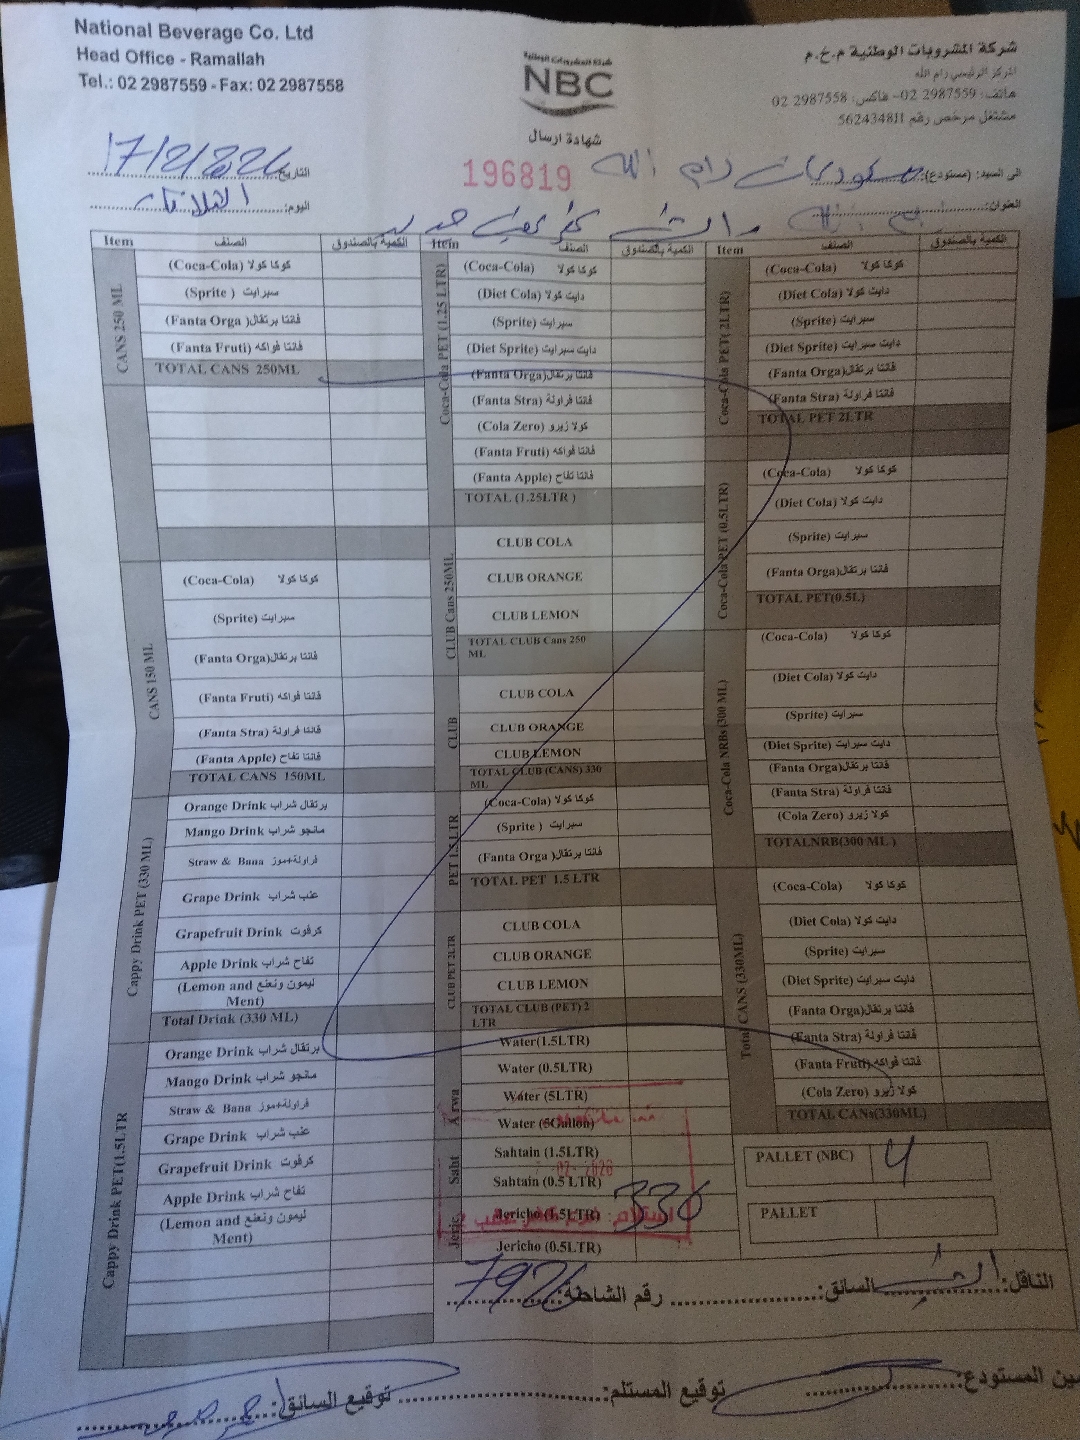 National Beverage Co. Ltd
Head Office - Ramallah
Tel.: 02 2987559 - Fax: 02 2987558
شركة المشروبات الوطنية
NBC
شركة المشروبات الوطنية م.خ.م
المركز الرئيسي رام الله
هاتف: 2987559 02- فاكس: 2987558 02
مشتغل مرخص رقم 562434811
شهادة ارسال
196819
التاريخ:
اليوم: الثلاثاء
الى السيد: (مستودع): رام الله
العنوان:
Item الصنف الكمية بالصندوق
CANS 250 ML
(Coca-Cola) كوكا كولا
(Sprite ) سبرايت
(Fanta Orga )فانتا برتقال
(Fanta Fruti) فانتا فواكه
TOTAL CANS 250ML
CANS 150 ML
(Coca-Cola) كوكا كولا
(Sprite) سبرايت
(Fanta Orga)فانتا برتقال
(Fanta Fruti) فانتا فواكه
(Fanta Stra) فانتا فراولة
(Fanta Apple) فانتا تفاح
TOTAL CANS 150ML
Cappy Drink PET (330 ML)
Orange Drink برتقال شراب
Mango Drink مانجو شراب
Straw & Bana فراولة+موز
Grape Drink عنب شراب
Grapefruit Drink كرفوت
Apple Drink تفاح شراب
(Lemon and ليمون ونعنع
Ment)
Total Drink (330 ML)
Cappy Drink PET(1.5LTR
Orange Drink برتقال شراب
Mango Drink مانجو شراب
Straw & Bana فراولة+موز
Grape Drink عنب شراب
Grapefruit Drink كرفوت
Apple Drink تفاح شراب
(Lemon and ليمون ونعنع
Ment)
Item الصنف الكمية بالصندوق
Coca-Cola PET (1.25 LTR)
(Coca-Cola) كوكا كولا
(Diet Cola) دايت كولا
(Sprite) سبرايت
(Diet Sprite) دايت سبرايت
(Fanta Orga)فانتا برتقال
(Fanta Stra) فانتا فراولة
(Cola Zero) كولا زيرو
(Fanta Fruti) فانتا فواكه
(Fanta Apple) فانتا تفاح
TOTAL (1.25LTR )
CLUB Cans 250ML
CLUB COLA
CLUB ORANGE
CLUB LEMON
TOTAL CLUB Cans 250
ML
CLUB
CLUB COLA
CLUB ORANGE
CLUB LEMON
TOTAL CLUB (CANS) 330
ML
PET 1.5 LTR
(Coca-Cola) كوكا كولا
(Sprite ) سبرايت
(Fanta Orga )فانتا برتقال
TOTAL PET 1.5 LTR
CLUB PET 2LTR
CLUB COLA
CLUB ORANGE
CLUB LEMON
TOTAL CLUB (PET) 2
LTR
Arwa
Water(1.5LTR)
Water (0.5LTR)
Water (5LTR)
Water (5Gallon)
Saht
Sahtain (1.5LTR)
Sahtain (0.5 LTR)
Jeric
Jericho (1.5LTR) 336
Jericho (0.5LTR)
Item الصنف الكمية بالصندوق
Coca-Cola PET( 2LTR)
(Coca-Cola) كوكا كولا
(Diet Cola) دايت كولا
(Sprite) سبرايت
(Diet Sprite) دايت سبرايت
(Fanta Orga)فانتا برتقال
(Fanta Stra) فانتا فراولة
TOTAL PET 2LTR
Coca-Cola PET (0.5LTR)
(Coca-Cola) كوكا كولا
(Diet Cola) دايت كولا
(Sprite) سبرايت
(Fanta Orga)فانتا برتقال
TOTAL PET(0.5L)
Coca-Cola NRBs (300 ML)
(Coca-Cola) كوكا كولا
(Diet Cola) دايت كولا
(Sprite) سبرايت
(Diet Sprite) دايت سبرايت
(Fanta Orga)فانتا برتقال
(Fanta Stra) فانتا فراولة
(Cola Zero) كولا زيرو
TOTALNRB(300 ML )
Total CANS (330ML)
(Coca-Cola) كوكا كولا
(Diet Cola) دايت كولا
(Sprite) سبرايت
(Diet Sprite) دايت سبرايت
(Fanta Orga)فانتا برتقال
(Fanta Stra) فانتا فراولة
(Fanta Fruti) فانتا فواكه
(Cola Zero) كولا زيرو
TOTAL CANs(330ML)
PALLET (NBC) 4
PALLET
الناقل: السائق: رقم الشاحنة: 7926
المستودع: توقيع المستلم: توقيع السائق: